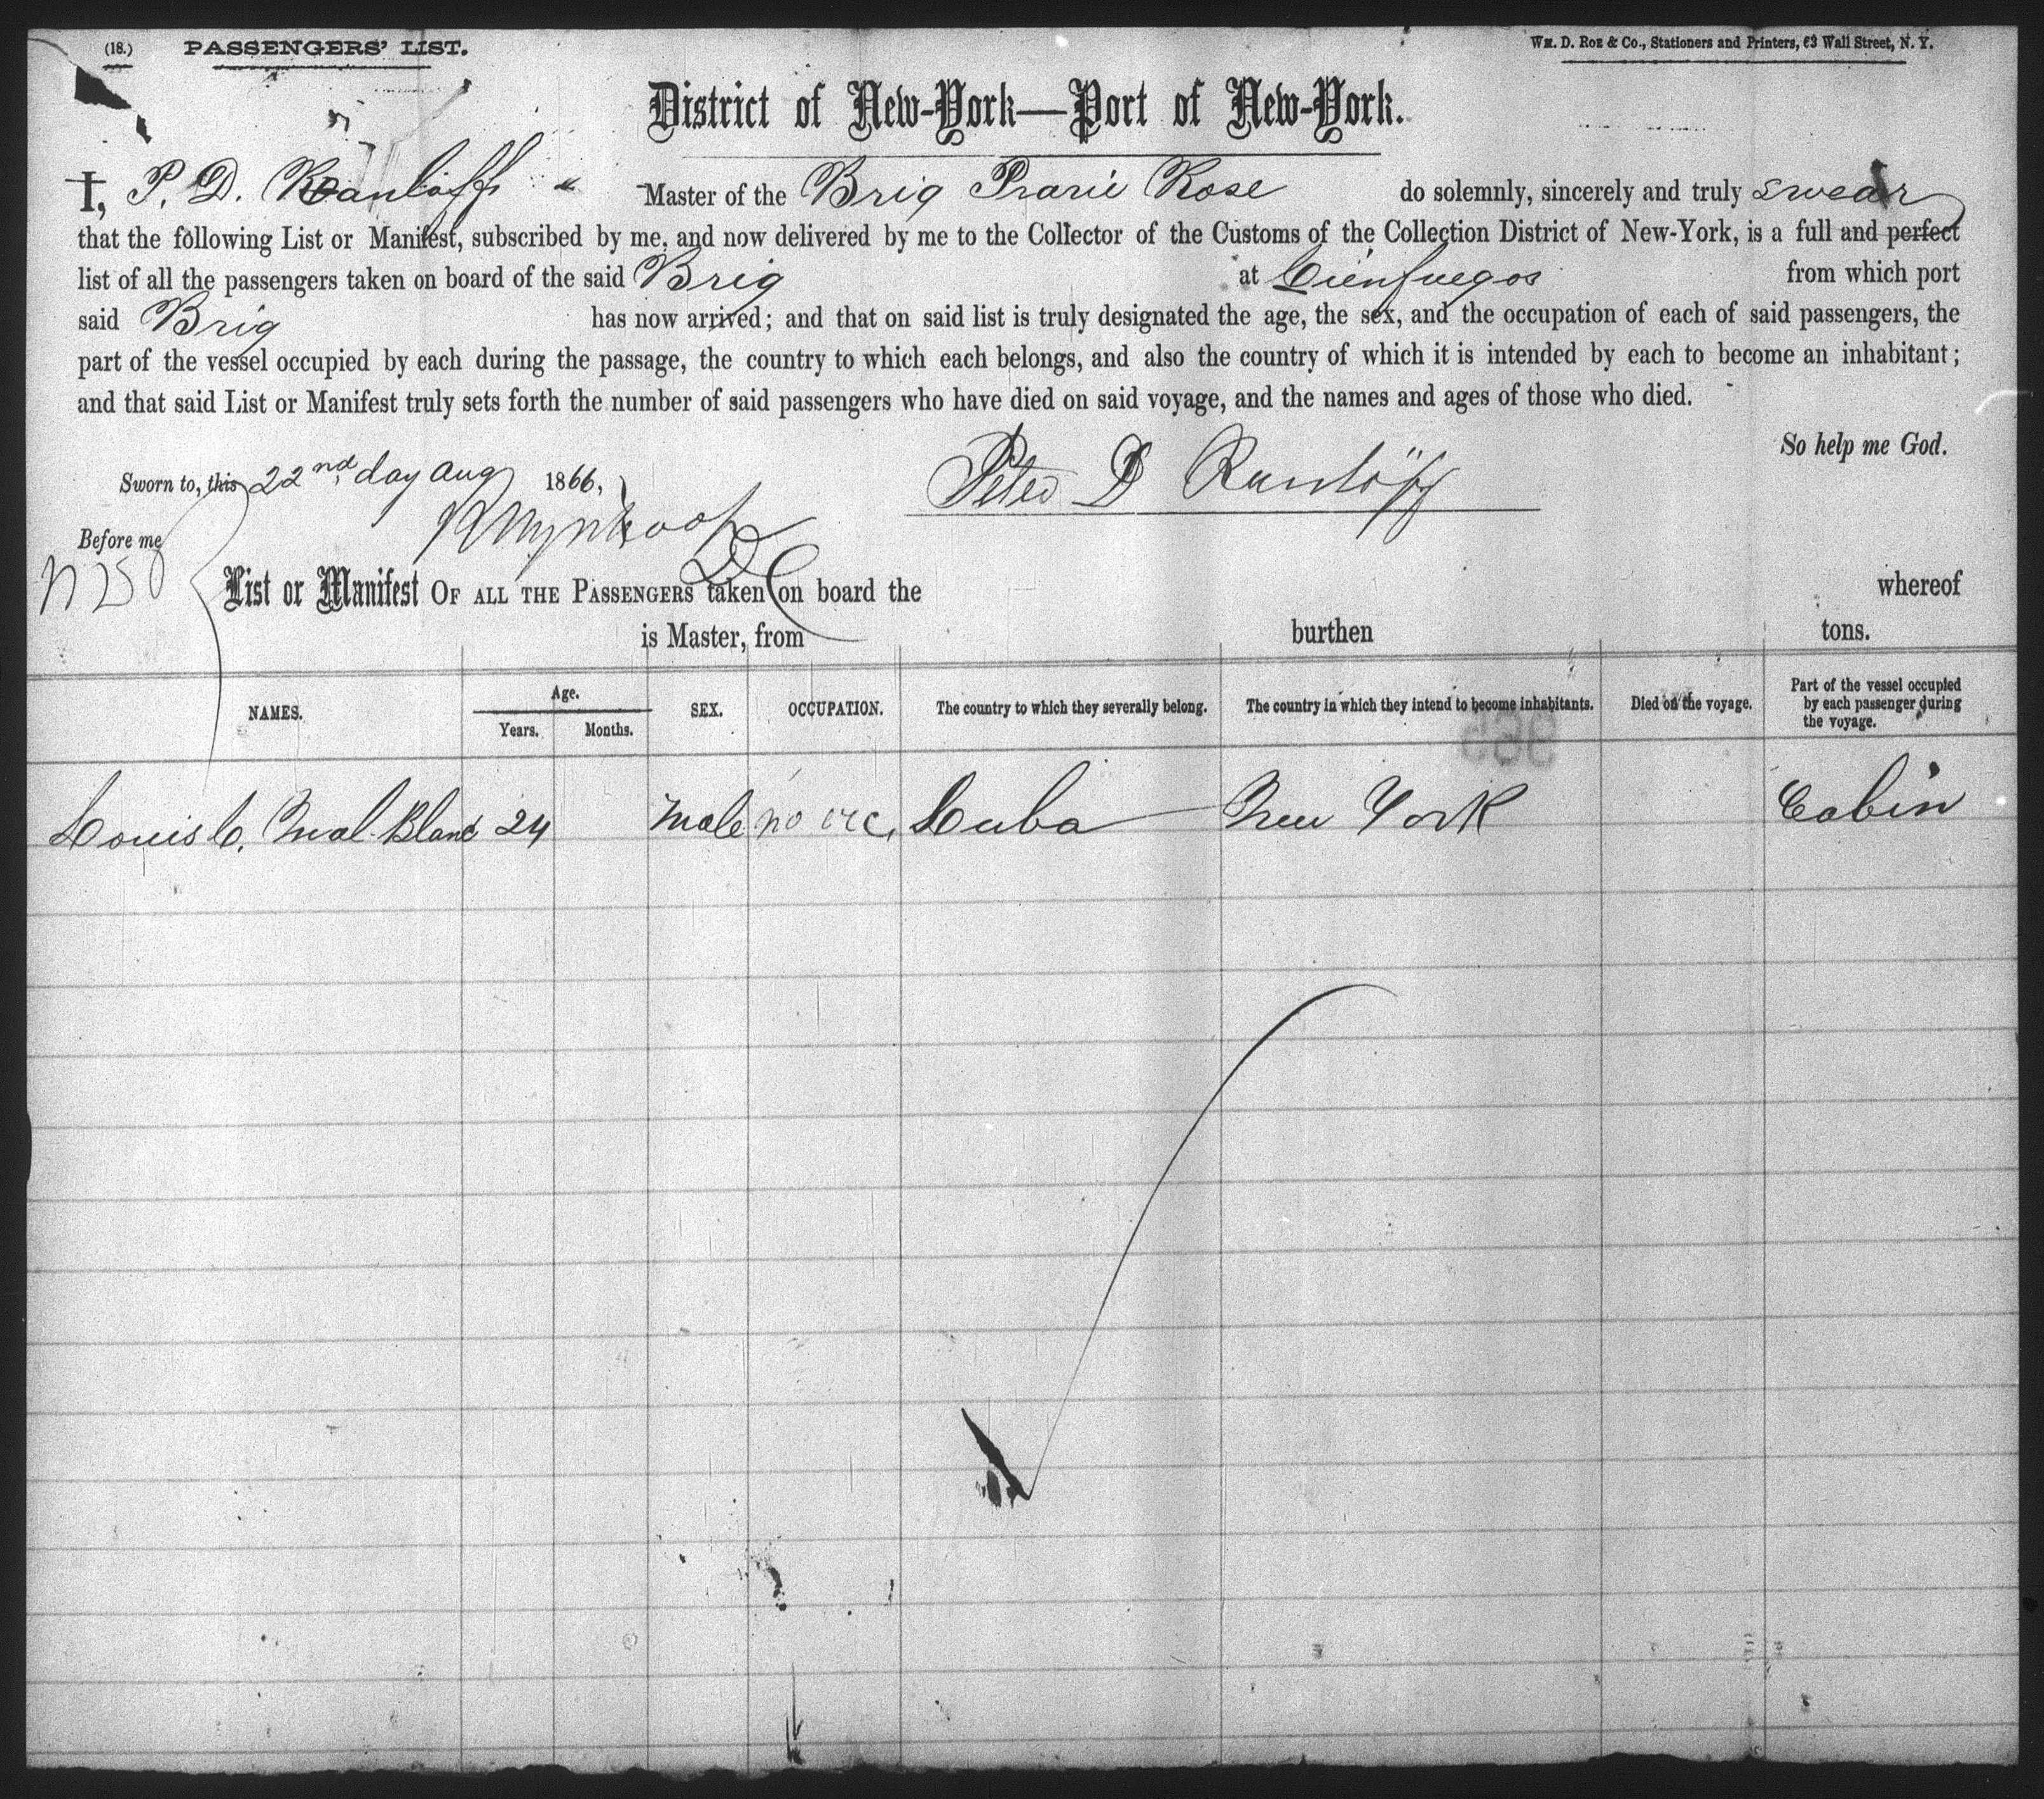 (18.) PASSENGERS' LIST.
Wm. D. Roe & Co., Stationers and Printers, 63 Wall Street, N. Y.
District of New-York—Port of New-York.
I, P. D. Ranlöff Master of the Brig Prarie Rose do solemnly, sincerely and truly swear
that the following List or Manifest, subscribed by me, and now delivered by me to the Collector of the Customs of the Collection District of New-York, is a full and perfect
list of all the passengers taken on board of the said Brig at Cienfuegos from which port
said Brig has now arrived; and that on said list is truly designated the age, the sex, and the occupation of each of said passengers, the
part of the vessel occupied by each during the passage, the country to which each belongs, and also the country of which it is intended by each to become an inhabitant;
and that said List or Manifest truly sets forth the number of said passengers who have died on said voyage, and the names and ages of those who died.
So help me God.
Sworn to, this 22nd day Aug 1866,
Peter D Ranlöff
Before me
Wynkoop
D C
List or Manifest OF ALL THE PASSENGERS taken on board the whereof
is Master, from burthen tons.
NAMES. Age. Years. Months. SEX. OCCUPATION. The country to which they severally belong. The country in which they intend to become inhabitants. Died on the voyage. Part of the vessel occupied by each passenger during the voyage.
Louis C. Mal Blanc 24 Male no occ. Cuba New York Cabin